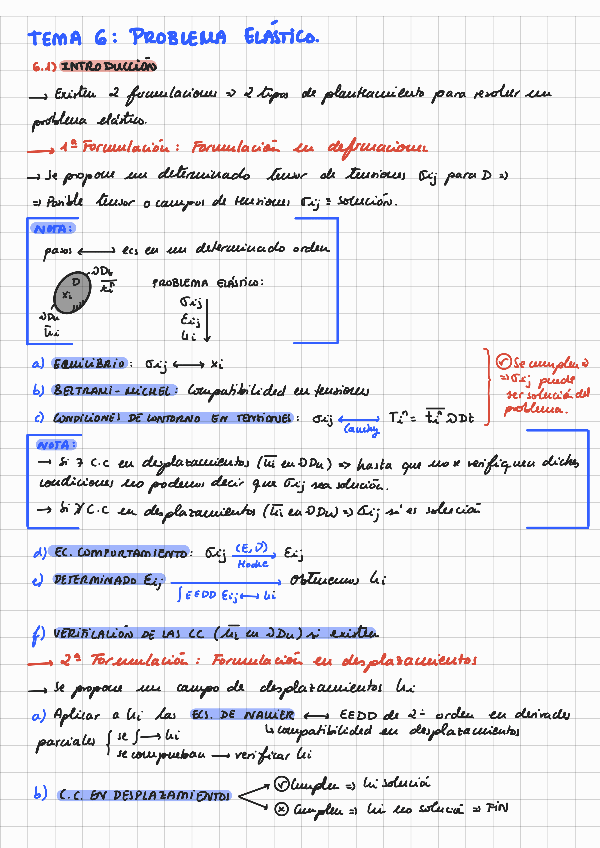 TEMA 6: PROBLEMA ELÁSTICO.
6.1) INTRODUCCIÓN
→ Existen 2 formulaciones ⇒ 2 tipos de planteamiento para resolver un
problema elástico.
→ 1ª Formulación: Formulación en deformaciones
→ Se propone un determinado tensor de tensiones σij para D ⇒
⇒ Posible tensor o campos de tensiones σij = solución.
NOTA:
pasos ⟷ ecs en un determinado orden
∂Dt
D
t̅iⁿ
xi
PROBLEMA ELÁSTICO:
∂Du
u̅i
σij
εij
ui
a) EQUILIBRIO: σij ⟷ xi
b) BELTRAMI-MICHEL: Compatibilidad en tensiones
c) CONDICIONES DE CONTORNO EN TENSIONES: σij ⟷ Tiⁿ = t̅iⁿ ∂Dt
Cauchy
✓ Se cumplen ⇒
⇒ σij puede
ser solución del
problema.
NOTA:
→ Si ∃ C.C en desplazamientos (u̅i en ∂Du) ⇒ hasta que no se verifiquen dichas
condiciones no podemos decir que σij sea solución.
→ Si ∄ C.C en desplazamientos (u̅i en ∂Du) ⇒ σij sí es solución
d) EC. COMPORTAMIENTO: σij (E,ν) → εij
Hooke
e) DETERMINADO εij → obtenemos ui
∫EEDD εij ⟷ ui
f) VERIFICACIÓN DE LAS CC (u̅i en ∂Du) si existen
→ 2ª Formulación: Formulación en desplazamientos
→ Se propone un campo de desplazamientos ui
a) Aplicar a ui las ECS. DE NAVIER ⟷ EEDD de 2º orden en derivadas
↳ compatibilidad en desplazamientos
parciales { se ∫ → ui
se comprueban → verificar ui
b) C.C. EN DESPLAZAMIENTOS
✓ Cumplen ⇒ ui solución
ⓧ Cumplen ⇒ ui no solución ⇒ FIN